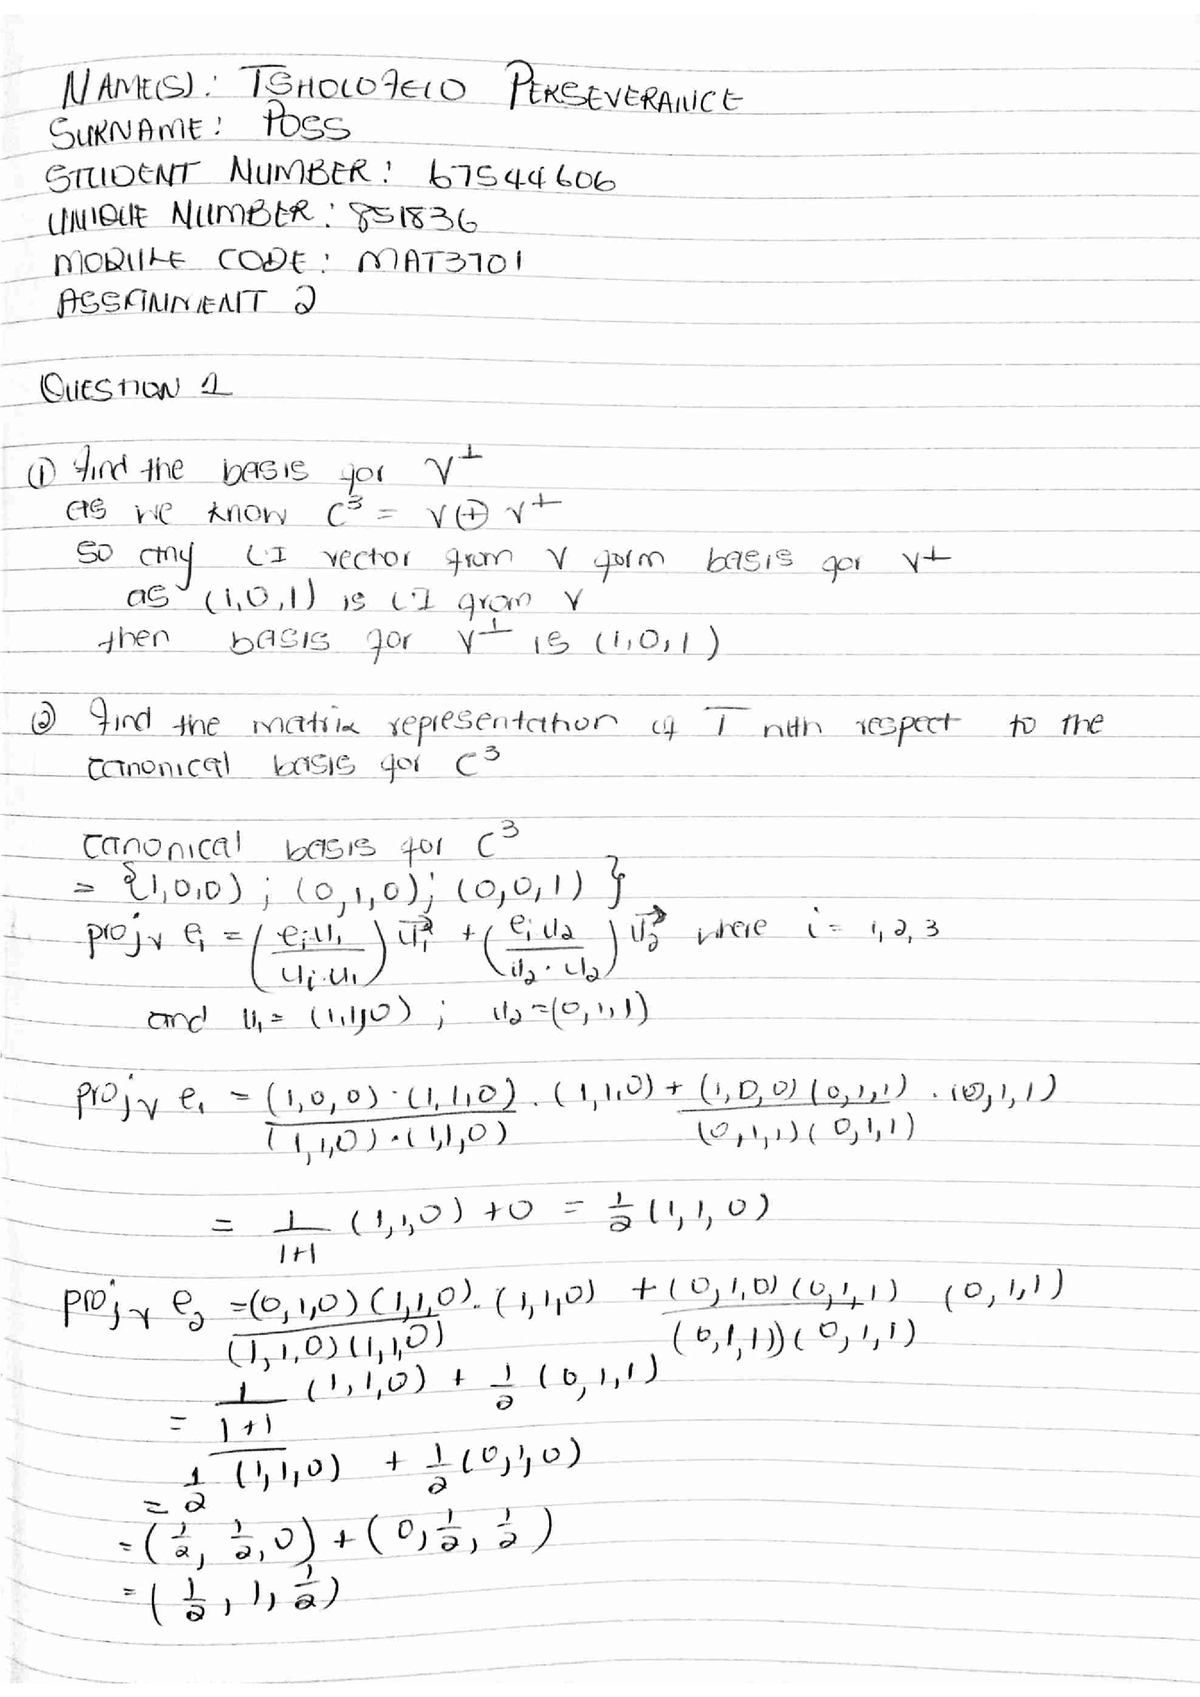 NAME(S): TSHOLOFELO PERSEVERANCE
SURNAME: POSS
STUDENT NUMBER: 67544606
UNIQUE NUMBER: 851836
MODULE CODE: MAT3701
ASSIGNMENT 2
QUESTION 1
① find the basis for V⊥
as we know C³ = V⊕V⊥
so any LI vector from V form basis for V⊥
as (1,0,1) is LI from V
then basis for V⊥ is (1,0,1)
② find the matrix representation of T with respect to the
canonical basis for C³
canonical basis for C³
= {1,0,0) ; (0,1,0); (0,0,1) }
proj_V e_i = (e_i.u₁ / u₁.u₁) u₁ + (e_i.u₂ / u₂.u₂) u₂ where i = 1,2,3
and u₁ = (1,1,0) ; u₂ = (0,1,1)
proj_V e₁ = (1,0,0)·(1,1,0) / (1,1,0)·(1,1,0) . (1,1,0) + (1,0,0)(0,1,1) / (0,1,1)(0,1,1) . (0,1,1)
= 1/(1+1) (1,1,0) + 0 = 1/2 (1,1,0)
proj_V e₂ = (0,1,0)(1,1,0) / (1,1,0)(1,1,0) . (1,1,0) + (0,1,0)(0,1,1) / (0,1,1))(0,1,1) (0,1,1)
= 1/(1+1) (1,1,0) + 1/2 (0,1,1)
= 1/2 (1,1,0) + 1/2 (0,1,0)
= (1/2, 1/2, 0) + (0, 1/2, 1/2)
= (1/2, 1, 1/2)